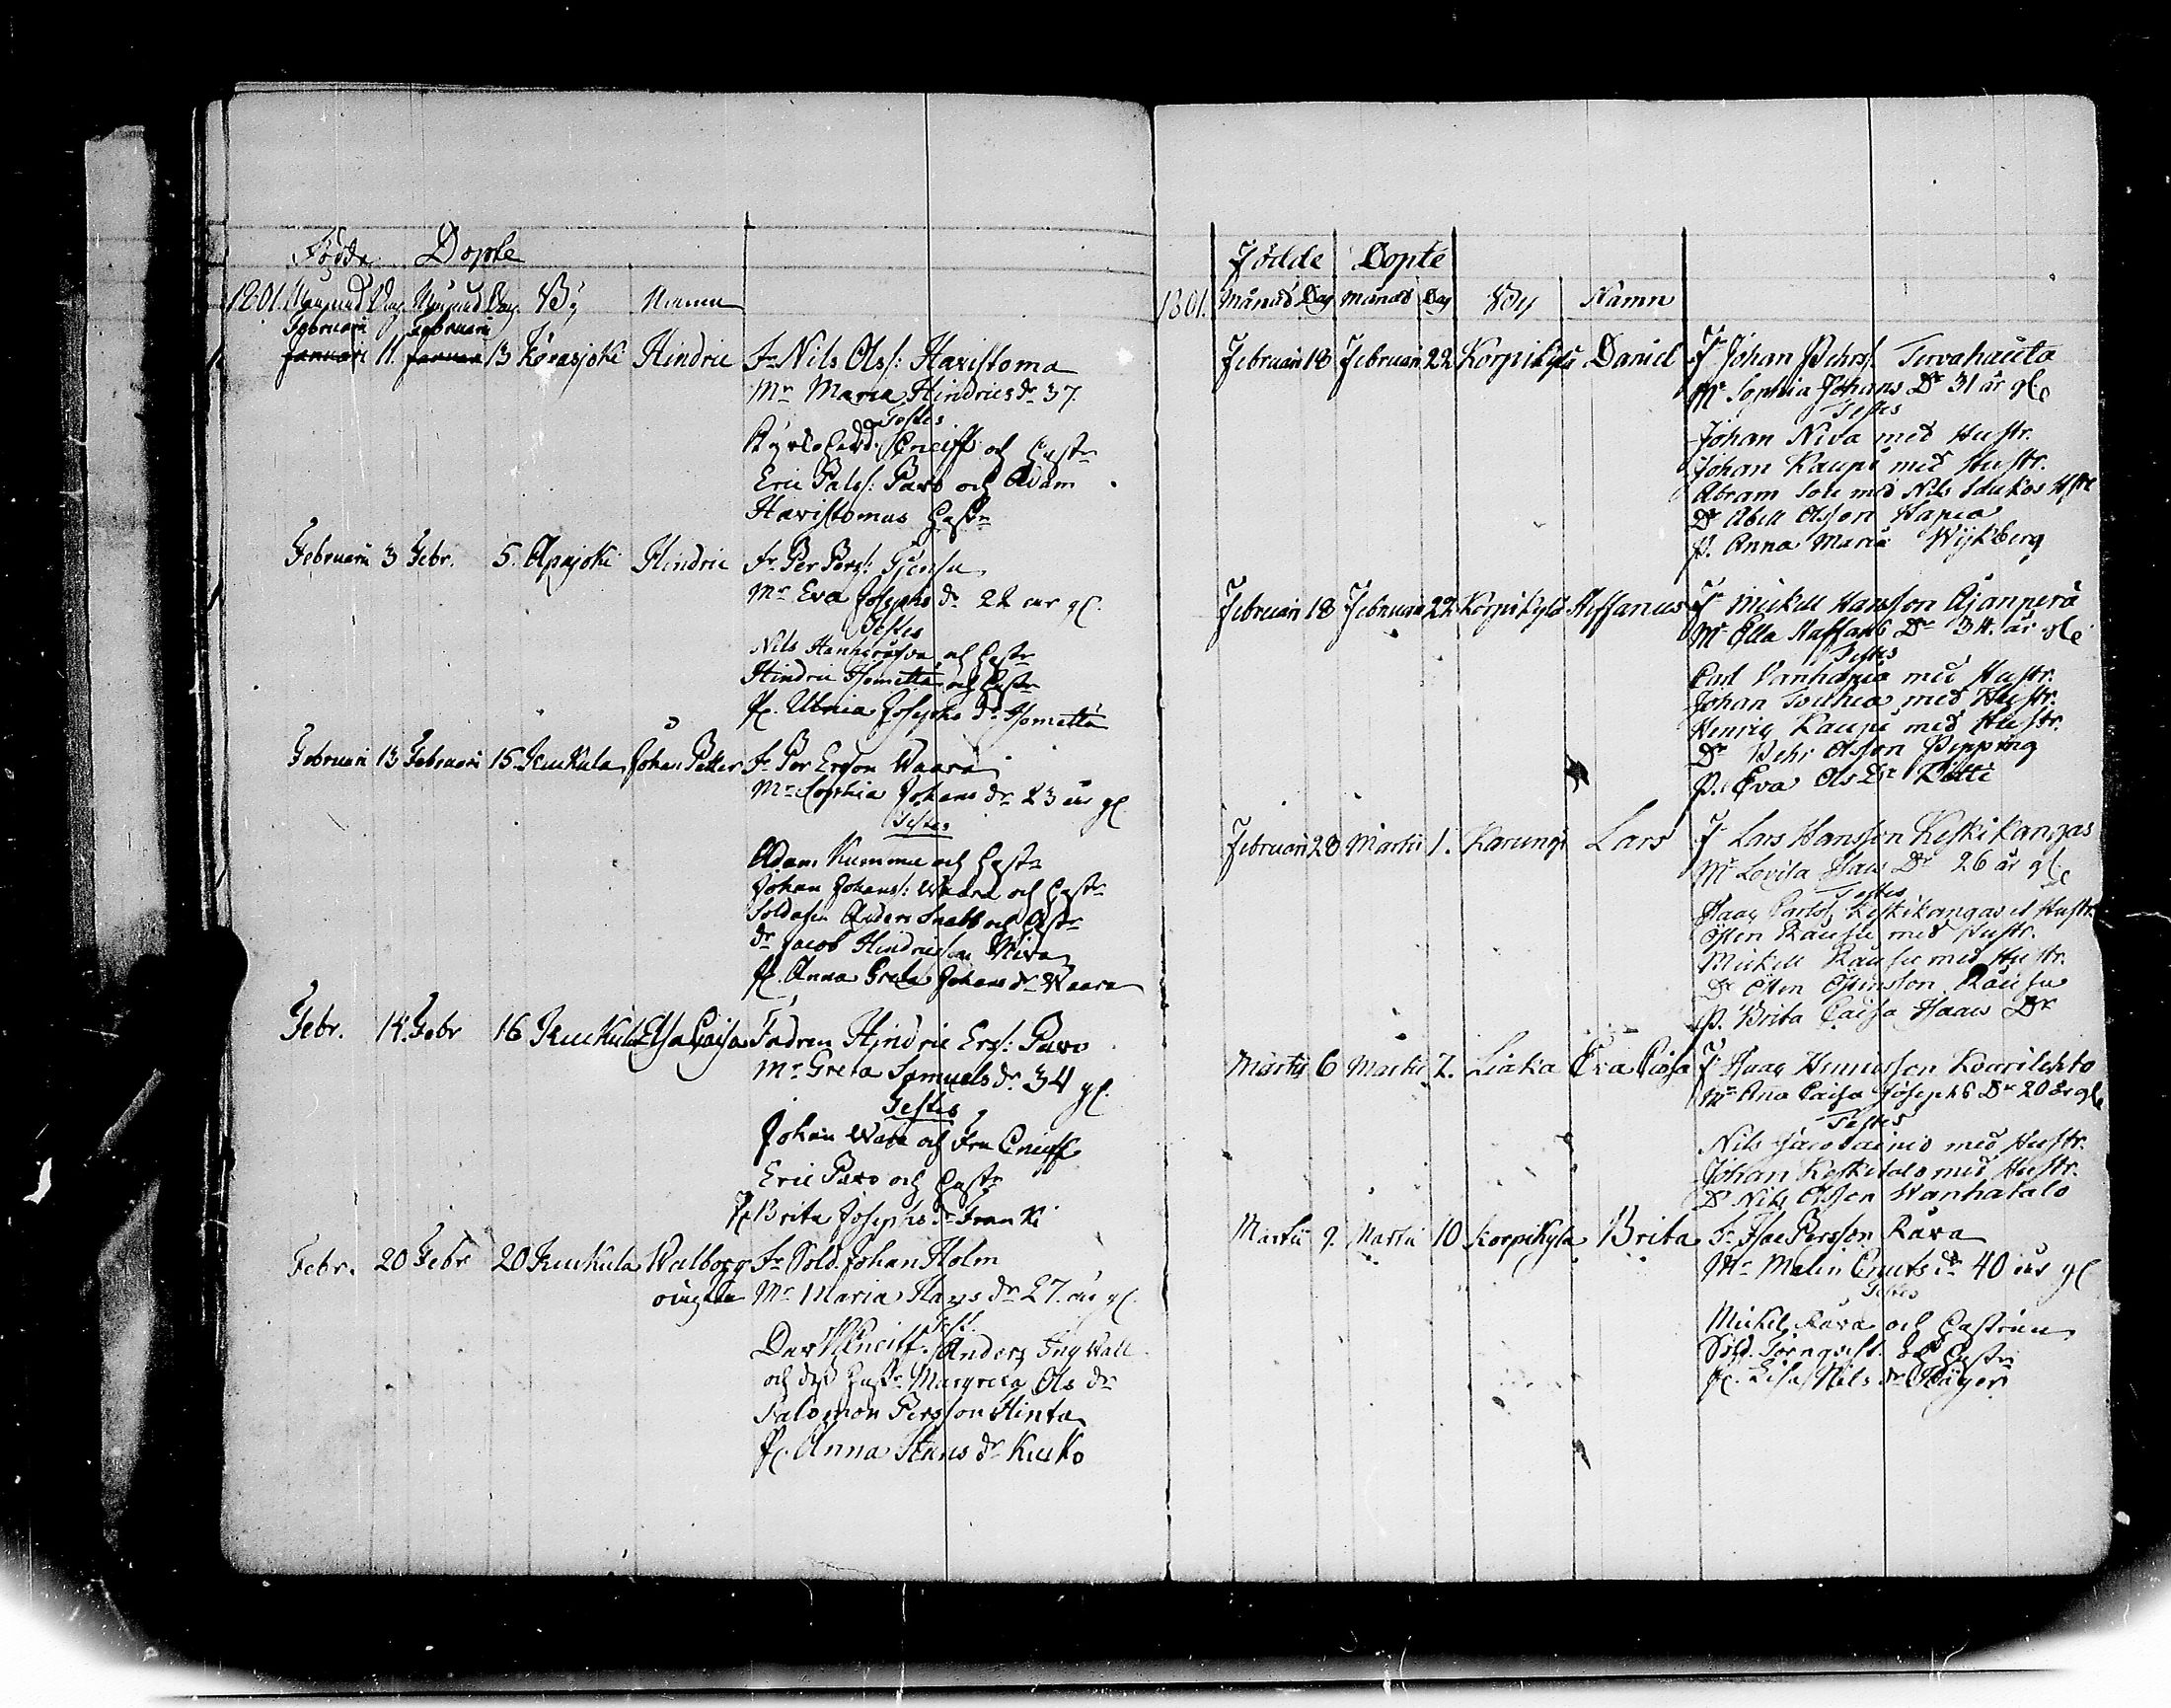 Födde Döpte
1801. Månad Dag Månad Dag By Namn
Februarii Februarii
Januari 11. Januari 13 Korasjoki Hindric Fr Nils Olss: Haristoma
Mr Maria Hindrics dr 37.
Testes
Cneiff och Hustr
Eric Palss: Pavo och Adam
Haristomas Hustr
Februarii 3 Febr. 5. Apajoki Hindric Fr Per Pers:
Mr Eva Josephs dr 22 år gl.
Testes
Nils och Hustr
Hindric Hometta och Hustr
P. Ulrica Josephs dr Hometta
Februari 13 Februari 15 Kukula Johan Petter Fr Per Erson Waara
Mr Sophia Johans dr 23 år gl.
Testes
Adam Kumma och Hustr
Johan Johans: Waara och Hustr
Soldaten Anders Snabb och Hustr
dr Jacob Hindricson Niva
P. Anna Greta Johans dr Waara
Febr. 14. Febr 16 Kukula Elsa Caisa Fadren Hindric Ers: Pavo
Mr Greta Samuels dr 34 gl.
Testes
Johan Wara och Fru Cneiff
Eric Pavo och Hustr
P. Brita Josephs dr Franki
Febr. 20 Febr 20 Kukula Walborg Fr Sold. Johan Holm
oingta Mr Maria Hans dr 27. år gl.
Test.
Dav Cneiff. Anders Ingwall
och dess Hustr Margreta Ols dr
Salomon Persson Hinta
P. Anna Hans dr Kusko
Födde Döpte
1801. Månad Dag Månad Dag By Namn
Februari 18 Februari 22 Korpikylä Daniel F Johan Pehrss. Tervahauta
Mr Sophia Johans Dr 31 år gle
Testes
Johan Niva med Hustr.
Johan Kaupi med Hustr.
Abram med Nils Hstr
Dr Abell Olsson Hapea
P. Anna Maria Wijkberg
Februari 18 Februari 22 Korpikylä Staffanus F Mickell Hansson Äjänperä
Mr Ella Staffans Dr 34. år gle
Testes
Carl Vanhapio med Hustr.
Johan med Hustr.
Henric Kaupi med Hustr.
Dr Pehr Olsson Pipping
P. Eva Ols Dr Kitti
Februari 28 Martii 1. Karungi Lars F Lars Hansson Keskikangas
Mr Lovisa Isacs Dr 26 år gle
Testes
Isaac Carlss. Keskikangas et Hustr.
Östen Rausu med Hustr.
Mickell Rausu med Hustr.
Dr Östen Östensson Rausu
P. Brita Caisa Isaacs Dr
Martii 6 Martii 7. Liaka Eva Caisa F Isaac Henricsson Kourilehto
Mr Ana Caisa Josephs Dr 20 år gle
Testes
Nils med Hustr.
Johan Keskitalo med Hustr.
Dr Nils Olsson Wanhatalo
Martii 9. Martii 10 Korpikyla Brita Fr Isac Persson Rava
Mr Malin Cnuts dr 40 år gl
Testes
Mickel Rava och Hustrun
Sold. Törnqvist. och Hustr
P. Lisa Nils dr